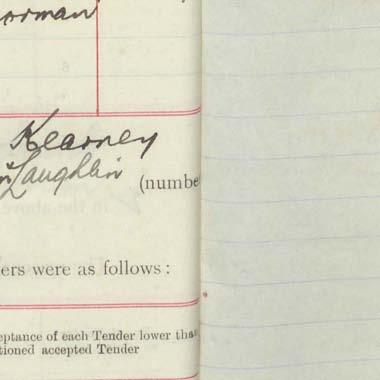 orman
Kearney
Laughlin
(numbe
ers were as follows :
eptance of each Tender lower than
tioned accepted Tender